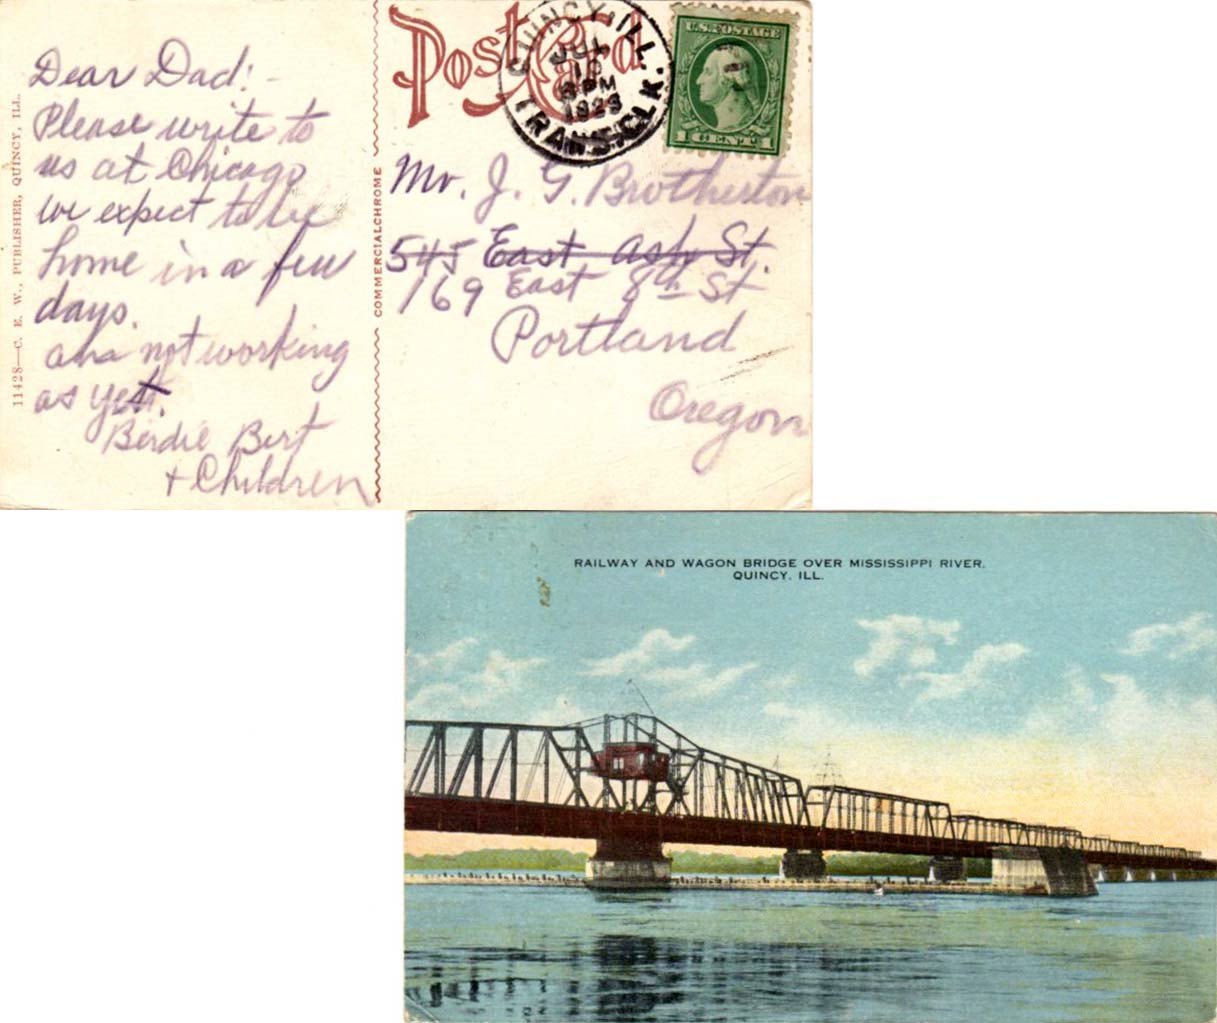 Dear Dad:-
Please write to
us at Chicago
we expect to be
home in a few
days.
not working
as yet.
Berdie Bert
+ Children
11428—C. E. W., PUBLISHER, QUINCY, ILL.
COMMERCIALCHROME
Post Card
QUINCY, ILL.
JUL
10
PM
TRANS. CLK.
U.S. POSTAGE
1 CENT 1
Mr. J. G. Brotherton
545 East Ash St.
169 East 8th St
Portland
Oregon
RAILWAY AND WAGON BRIDGE OVER MISSISSIPPI RIVER,
QUINCY, ILL.